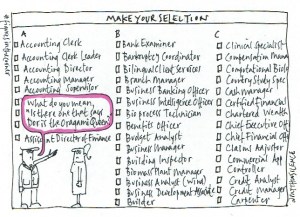 MAKE YOUR SELECTION
A
Accounting Clerk
Accounting Clerk Leader
Accounting Director
Accounting Manager
Accounting Supervisor
What do you mean,
"Is there one that says
Doris the Oragami Queen"
Assistant Director of Finance
B
Bank Examiner
Bankruptcy Coordinator
Bilingual Client Services
Branch Manager
Business Banking Officer
Business Intelligence Officer
Bio process Technician
Benefit Officer
Budget Analyst
Business Manager
Building Inspector
Biomass Plant Manager
Business Analyst (Wind)
Business Development Associate
Builder
C
Clinical Specialist
Compensation Mana
Computational Biolo
Country Study Spec
Cash Manager
Certified Financial
Chartered Wealth
Chief Executive Off
Chief Financial Off
Claims Adjustor
Commercial App
Controller
Credit Analyst
Credit Manager
Carpenter